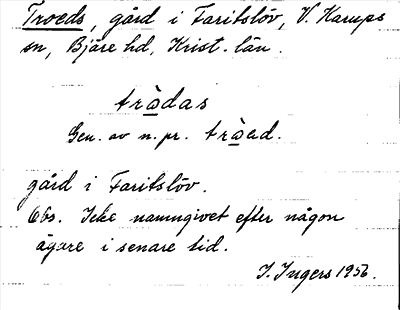 Troeds, gård i Faritslöv, V. Karups
sn, Bjäre hd, Krist. län.
tràdas
Gen. av n. pr. tròad.
gård i Faritslöv.
Obs. Icke namngivet efter någon
ägare i senare tid.
I. Ingers 1956.